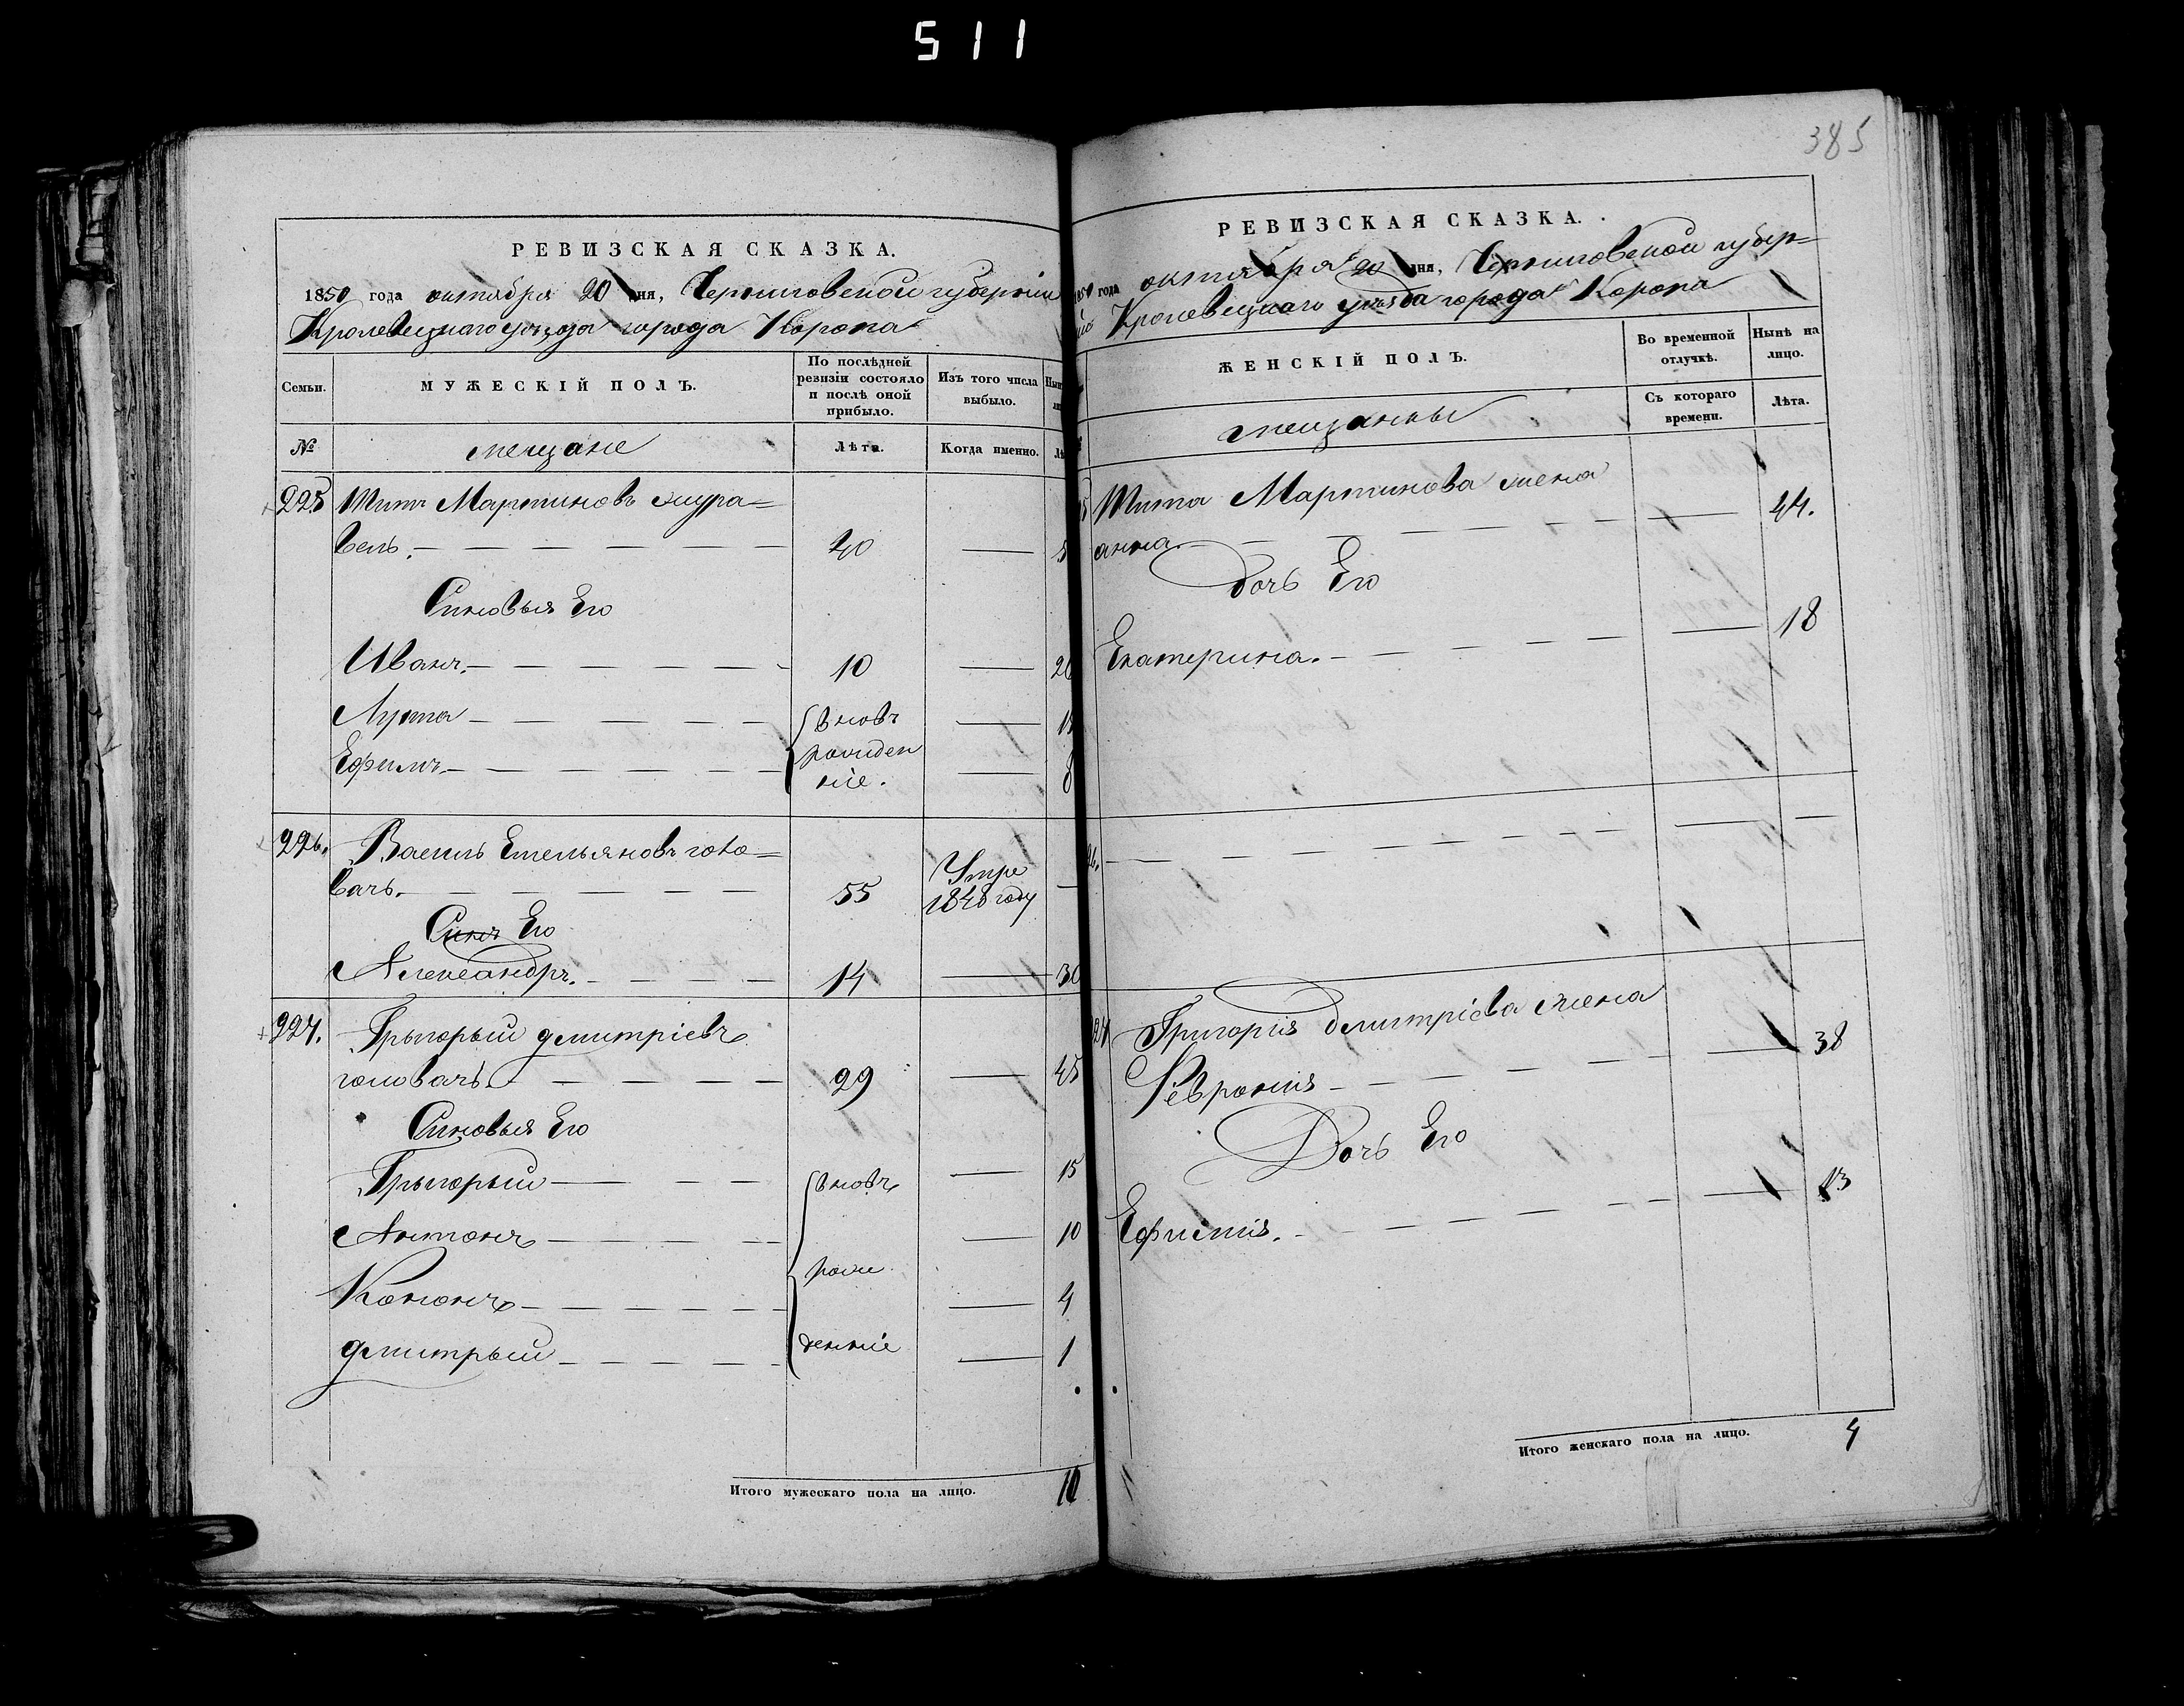 511
385
РЕВИЗСКАЯ СКАЗКА.
1850 года октября 20 дня, Черниговской губерніи
Кролевецкаго уезда города Коропа
Семьи.
МУЖЕСКІЙ ПОЛЪ.
По послѣдней ревизіи состояло и послѣ оной прибыло.
Изъ того числа выбыло.
№
мещане
Лѣта.
Когда именно.
225 Титъ Мартиновъ жура=
вель. 40
Синовья Его
Иванъ. 10
Лука вновь 
Ефимъ. рожден
ніе. 8
226. Василь Емельяновъ голо=
вачъ. 55 Умре 1848 году
Синъ Его
Александръ. 14 30
227. Грыгорый дмитріевъ
головачъ. 29 45
Синовья Его
Грыгорый вновь 15
Антонъ 10
Кононъ рож 4
дмитрый денніе 1
Итого мужескаго пола на лицо. 10
РЕВИЗСКАЯ СКАЗКА.
1850 года октября 20 дня, Черниговской губер=
ніи Кролевецкаго уезда города Коропа
ЖЕНСКІЙ ПОЛЪ.
Во временной отлучкѣ.
Нынѣ на лицо.
мещанки
Съ котораго времени.
Лѣта.
Тита Мартинова жена
анна. 44.
дочь Его
Екатерина. 18
Григорія дмитріева жена
Февронія 38
Дочь Его
Ефимія. 13
Итого женскаго пола на лицо. 4